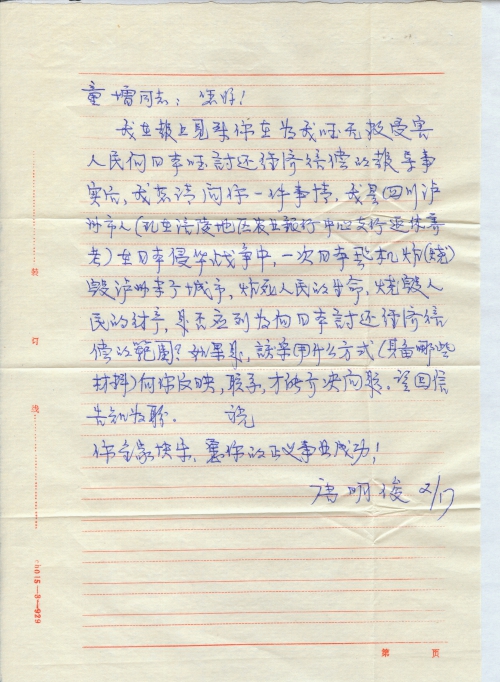 童增同志：您好！
我在报上见到你在为我国无数受害
人民向日本国討还经济赔偿的报导事
实后，我若请问你一件事情，我是四川泸
州市人（现在涪陵地区农业银行中心支行退休养
老）在日本侵华战争中，一次日本飞机炸（烧）
毁泸州半个城市，炸死人民的生命，烧毁人
民的财产，是否应列为向日本討还经济赔
偿的範围？如果是，該采用什么方式（具备哪些
材料）向你反映，联系，才能解决问题，望回信
告知为盼。 祝
你全家快乐，你的正义事业成功！
唐明俊 2/17
装
订
线
1015—3—929
第 页